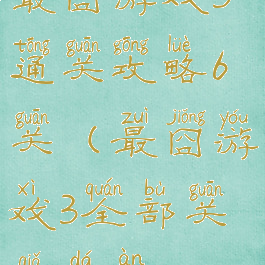 最囧游戏3
tōng guān gōng lüè
通关攻略6
guān zuì jiǒng yóu
关（最囧游
xì quán bù guān
戏3全部关
dá àn